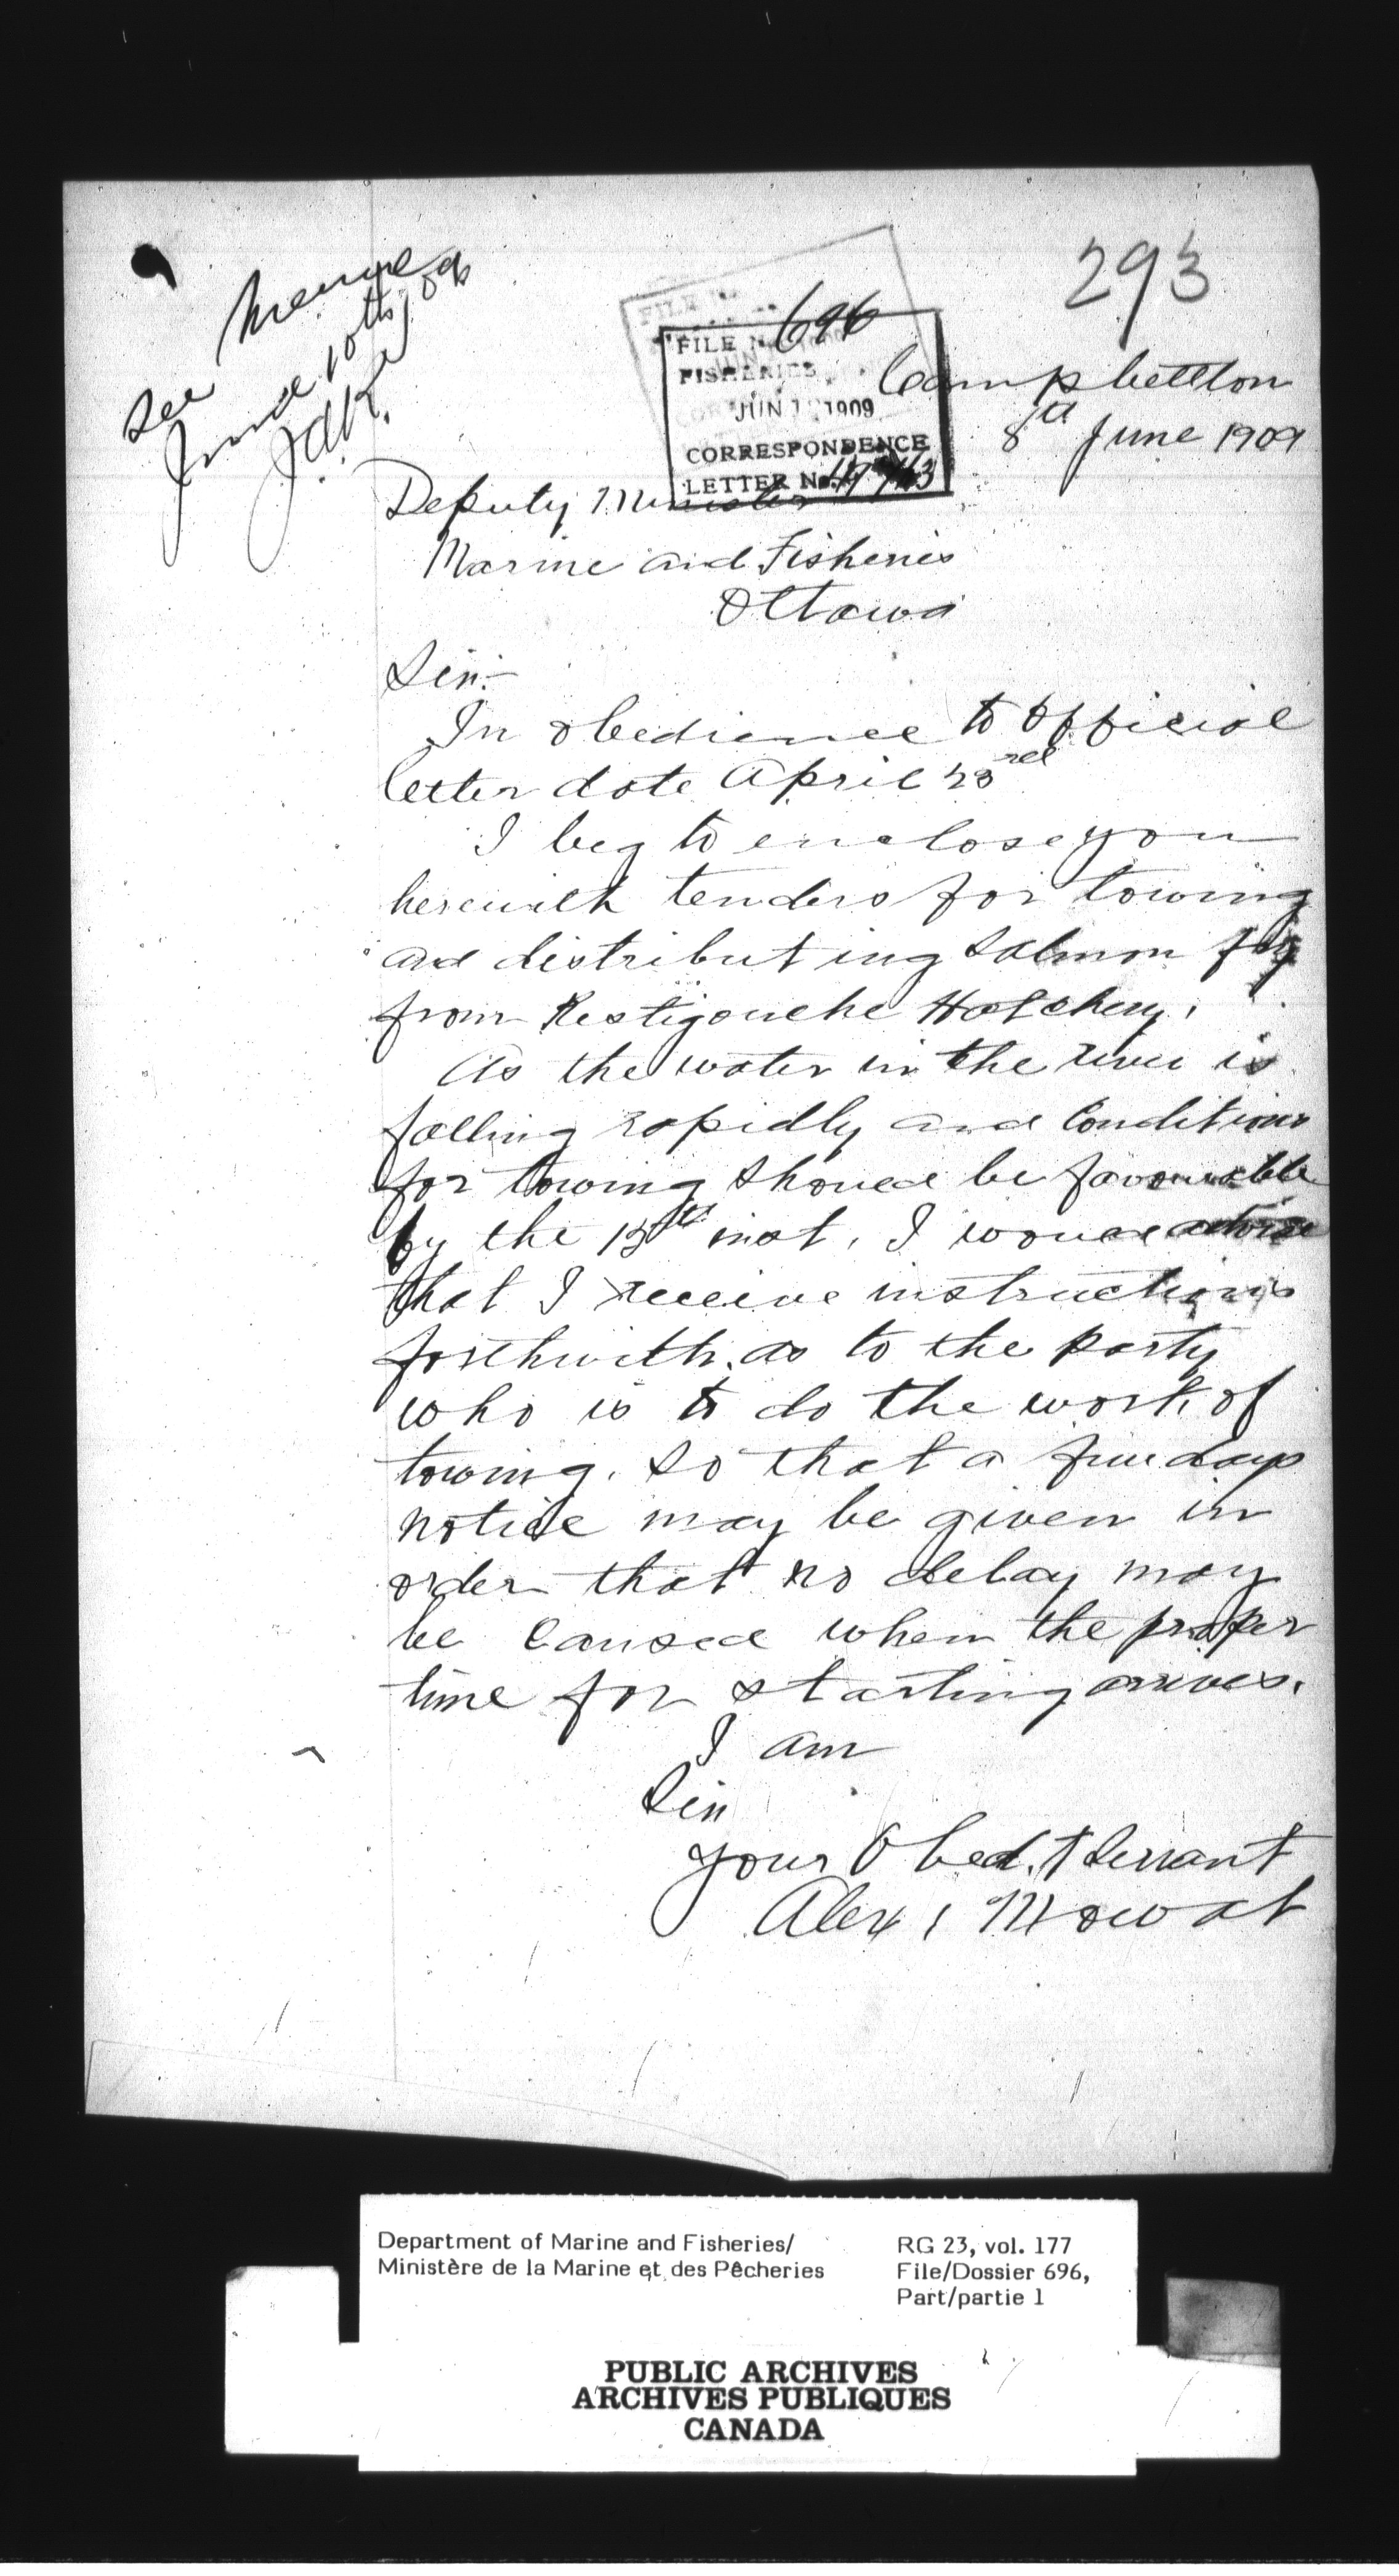 293
See Memo
June 10th/09
FILE No. 696
FISHERIES
JUN 1 1909
CORRESPONDENCE
LETTER No.
Campbellton
8th June 1909
Deputy Minister
Marine and Fisheries
Ottawa
Sir:-
In obedience to official
letter date April 23rd
I beg to enclose you
herewith tenders for towing
and distributing Salmon fry
from Restigouche Hatchery.
As the water in the river is
falling rapidly and Conditions
for towing should be favourable
by the 15th inst, I would advise
that I receive instructions
forthwith. as to the party
who is to do the work of
towing. So that a few days
notice may be given in
order that no delay may
be Caused when the proper
time for starting arrives.
I am
Sir
your Obed.t Servant
Alex, Mowat
Department of Marine and Fisheries/
Ministère de la Marine et des Pêcheries
RG 23, vol. 177
File/Dossier 696,
Part/partie 1
PUBLIC ARCHIVES
ARCHIVES PUBLIQUES
CANADA